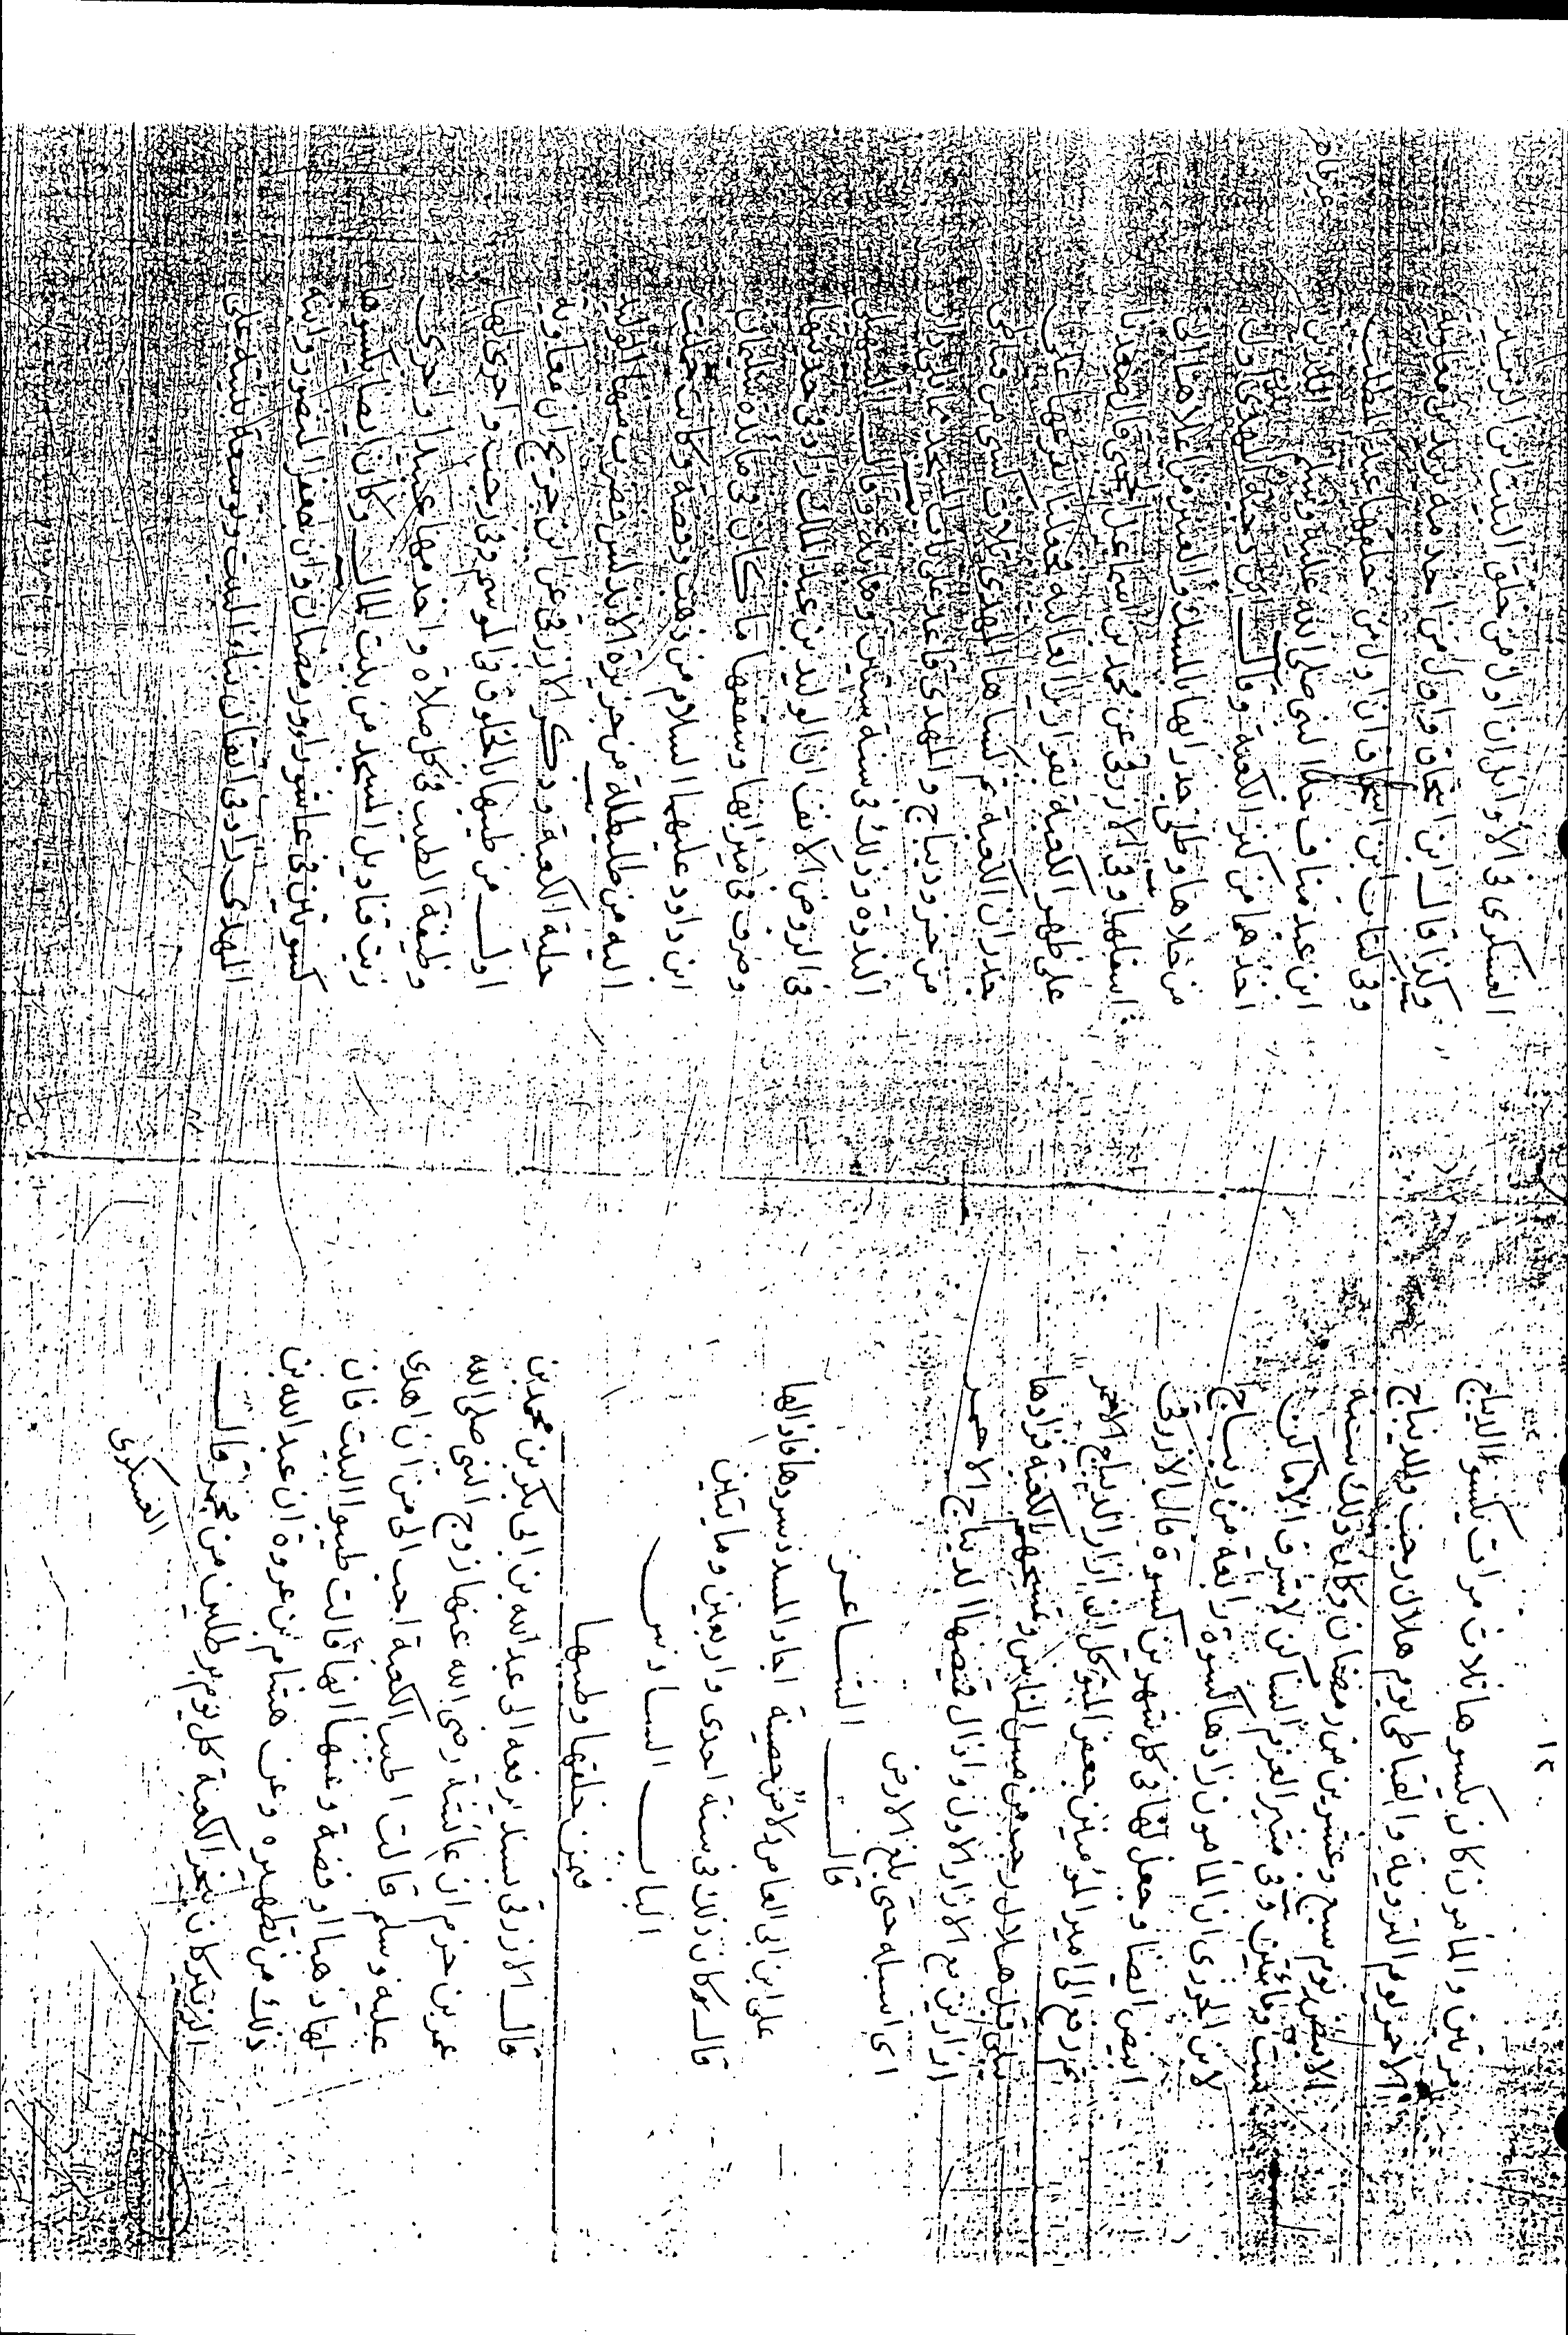 ١٢
مرتين والمأمون كان يكسوها ثلاث مرات يكسو الديباج
الاحمر يوم التروية والقباطى يوم هلال رجب والديباج
الابيض يوم سبع وعشرين من رمضان وكان ذلك سنة
ست ومائتين وفى مثير العزم الساكن لاشرف الاماكن
لابن الجوزى ان المأمون زادها كسوة رابعة من ديباج
ابيض ايضا وجعل لها فى كل شهرين كسوة قال الازرقى
ثم رفع الى امير المؤمنين جعفر المتوكل ان ازار الديباج الاحمر
يبلى قبل هلال رجب من مس الناس وتمسحهم بالكعبة فزادها
ازارين مع الازار الاول واذال قميصها الديباج الاحمر
اى اسبله حتى بلغ الارض
قال الشاعر
على ابن ابى العاص دلاص حصينة اجاد المسدى سردها فاذالها
قال وكان ذلك فى سنة احدى واربعين ومايتين
الباب السادس
فيمن خلقها وطيبها
قال الازرقى بسند يرفعه الى عبد الله بن ابى بكر بن محمد بن
عمر بن حزم ان عائشة رضى الله عنها زوج النبى صلى الله
عليه وسلم قالت اطيب الكعبة احب الى من ان اهدى
لها ذهبا وفضة وعنها انها قالت طيبوا البيت فان
ذلك من تطهيره وعن هشام بن عروة ان عبد الله بن
الزبير كان يجمر الكعبة كل يوم برطلين من مجمر قال
العسكرى
العسكرى فى الأوائل ان اول من خلق البيت ابن الزبير
وكذا قال ابن اسحاق واول من اخدمه يزيد بن معاوية
وفى كتاب ابن اسحاق ان اول من حلقها عبد المطلب
ابن عبد مناف جد النبى صلى الله عليه وسلم اللذين
اخذهما من كنز الكعبة وقال ابن دحية المهدى اول
من خلاها وطلى جدرانها بالمسك والعنبر من اعلاها الى
اسفلها وفى الازرقى عن محمد بن اسماعيل الحجبى قال صعدنا
على ظهر الكعبة بقوارير الغالية فجعلنا نفرغها على
جدران الكعبة ثم كساها المهدى ثلاث كسى من قباطى
من خز وديباج والمهدى قاعد على باب المسجد مما يلى دار
الندوة وذلك فى سنة ستين ومائة وقال السهيلى
فى الروض الانف ان الوليد بن عبد الملك زاد فى حليتها
وصرف فى ميزابها وسقفها ما كان فى مائدة سليمان
ابن داود عليهما السلام من ذهب وفضة وكانت حملت
اليه من طليطلة من جزيرة الاندلس فضرب منها الوليد
حلية الكعبة وذكر الازرقى عن ابن جريج ان معاوية
اول من طيبها بالخلوق فى الموسم وفى رجب واجرى لها
وظيفة الطيب فى كل صلاة واخدمها عبيدا واجرى
زيت قناديل المسجد من بيت المال وكان ايضا يكسوها
كسوتين فى عاشورا ورمضان وان ابا جعفر المنصور وابنه
المهدى زاد فى اتقان بناء البيت وتوسعة بنيته على